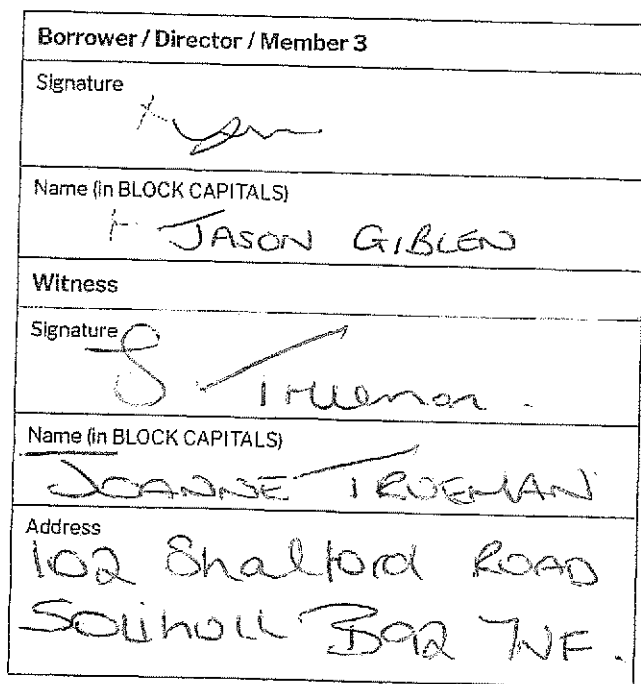 Borrower / Director / Member 3
Signature
Name (in BLOCK CAPITALS)
JASON GIBLEN
Witness
Signature
J. Trueman.
Name (in BLOCK CAPITALS)
JOANNE TRUEMAN
Address
102 Shalford ROAD
Solihull B92 7NF.